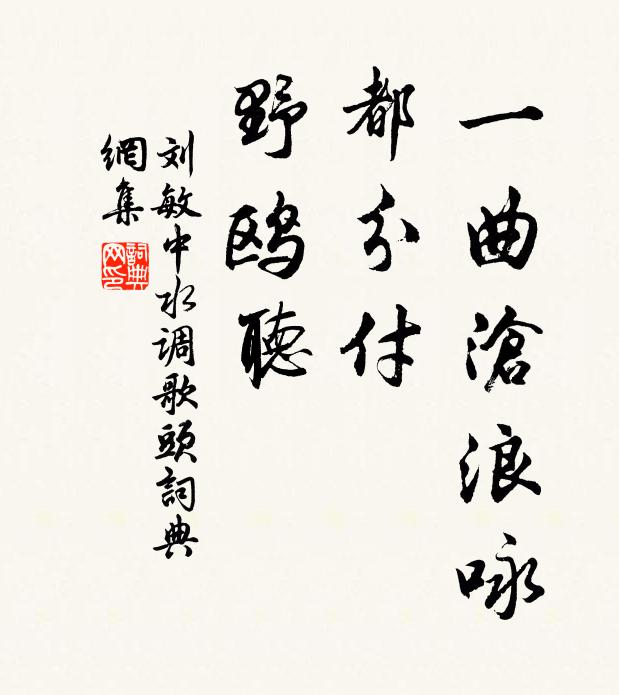 一曲滄浪咏
都分付
野鸥聽
刘敏中水调歌頭詞典
網集
詞典
网印